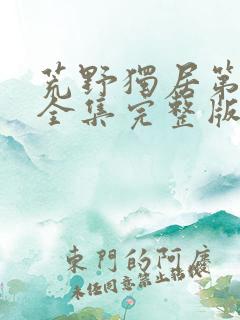 荒野獨居第
全集完整版
東門的阿廣
未任同意禁止轉載